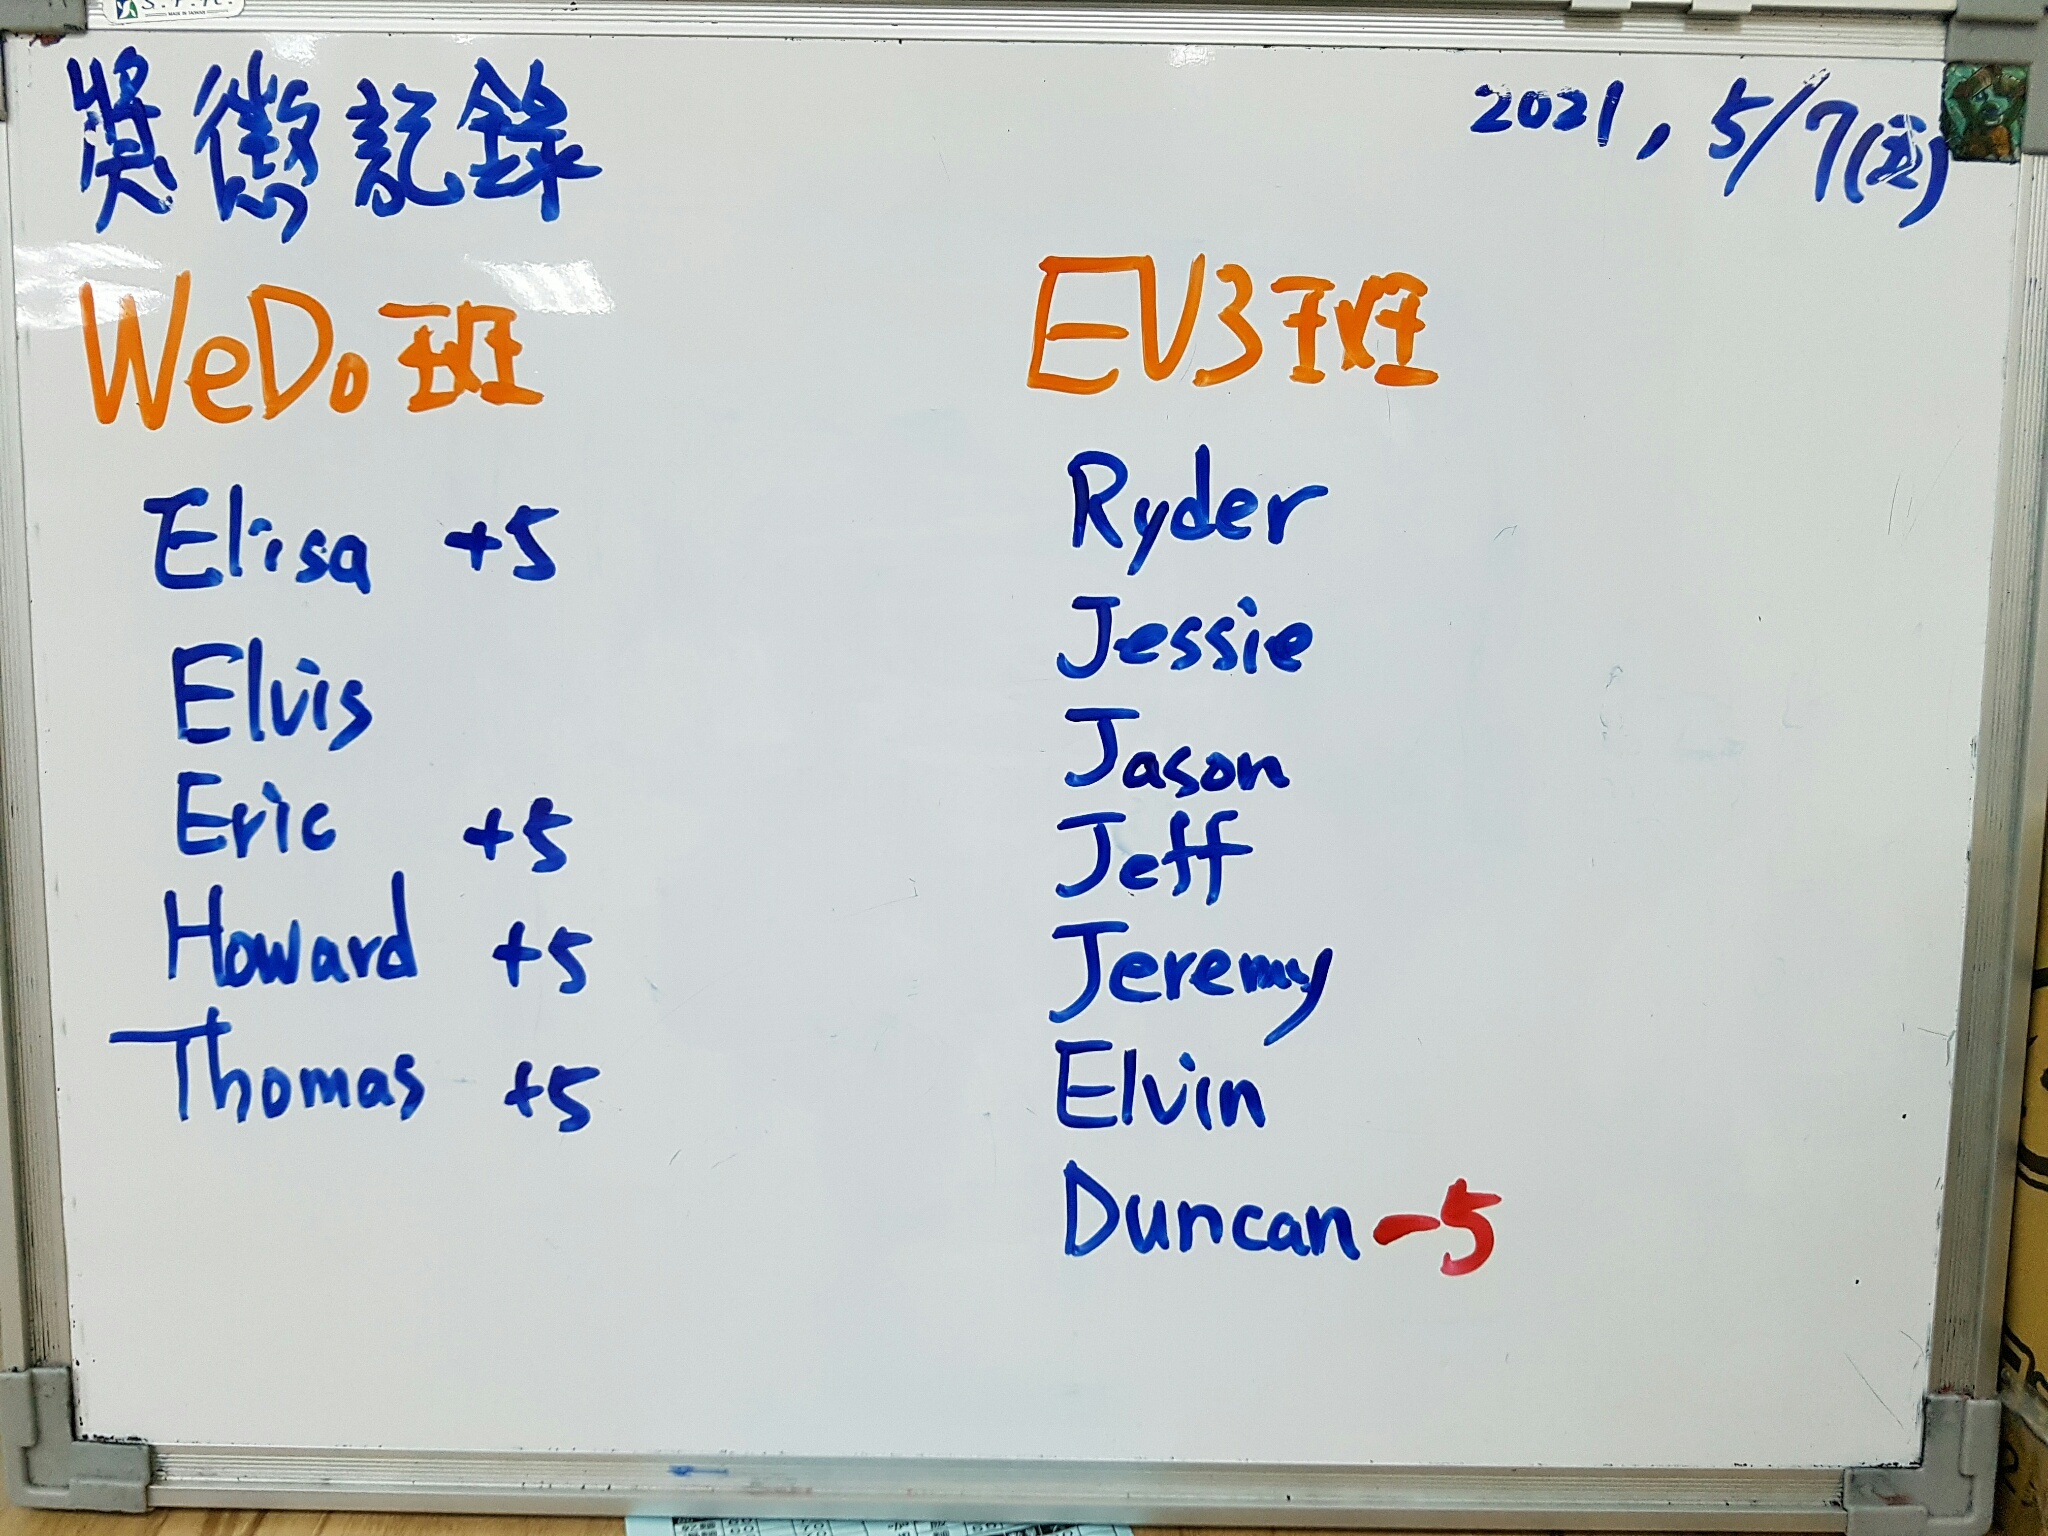 獎懲記錄
2021, 5/7(五)
WeDo班
Elisa +5
Elvis
Eric +5
Howard +5
Thomas +5
EV3班
Ryder
Jessie
Jason
Jeff
Jeremy
Elvin
Duncan -5
MADE IN TAIWAN